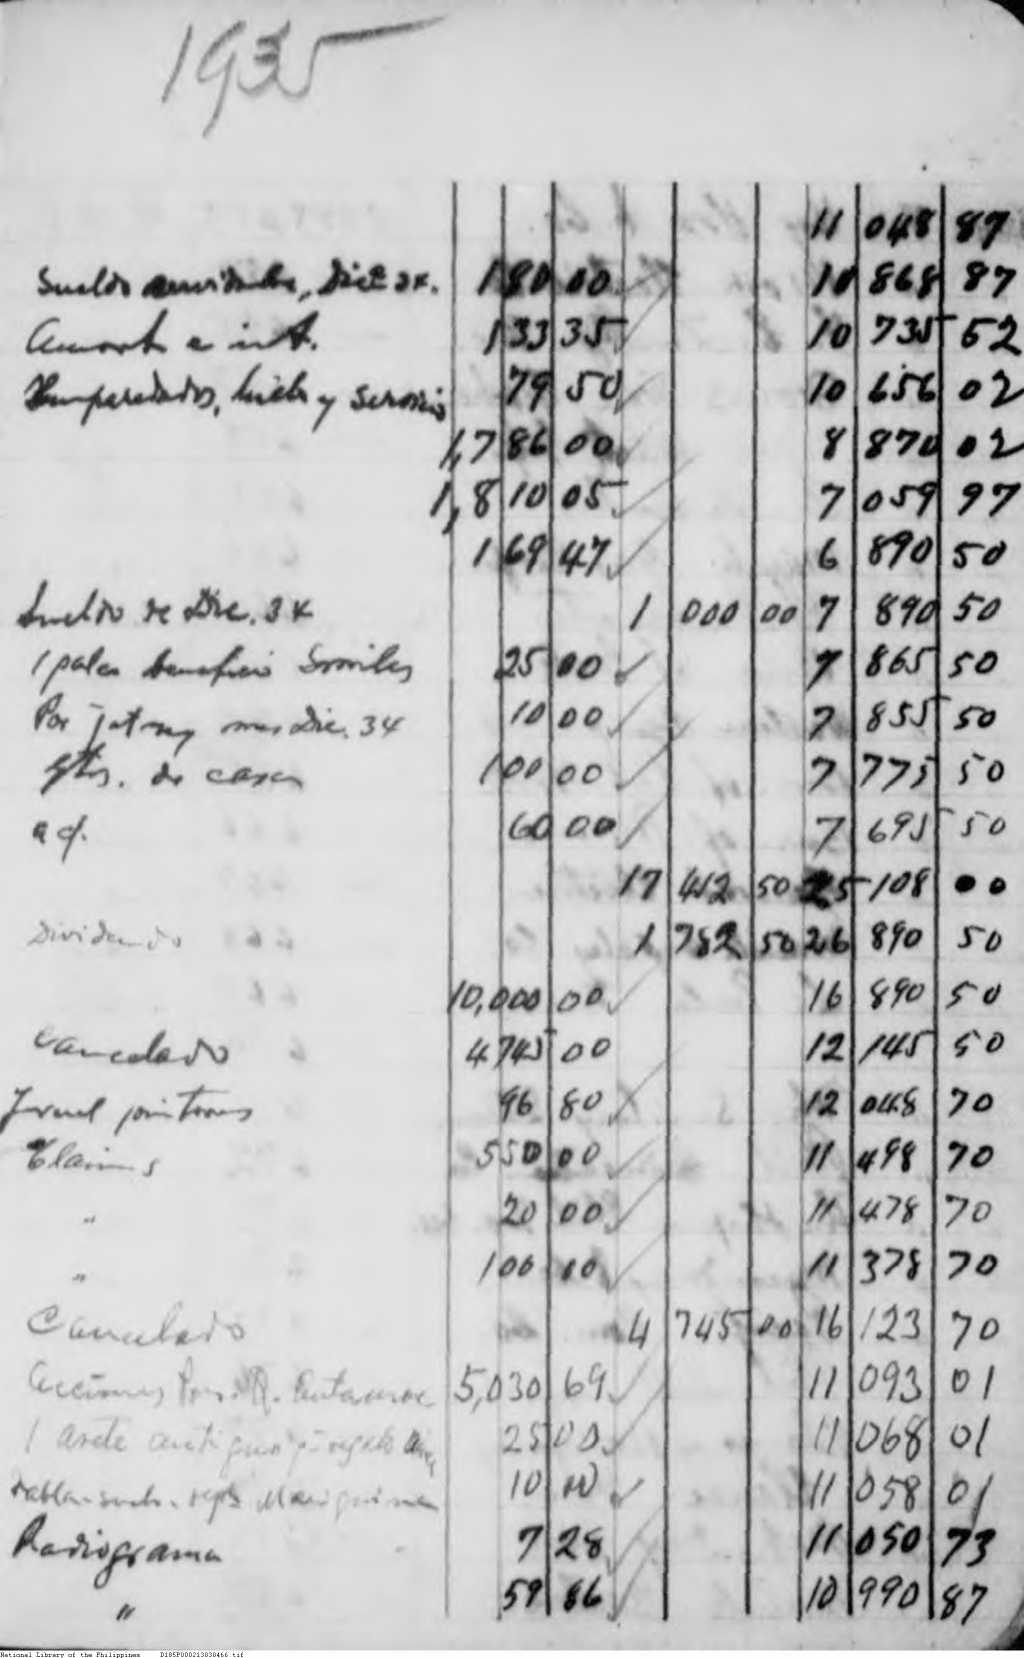 1935
11 048 87
Sueldo, Dice 34. 180 00 10 868 87
Amort e int. 133 35 10 735 52
Emparedados, hielo y servicio 79 50 10 656 02
1,786 00 8 870 02
1,810 05 7 059 97
169 47 6 890 50
Sueldo de Dic. 34 1 000 00 7 890 50
1 palco beneficio 25 00 7 865 50
Por mes Dic. 34 10 00 7 855 50
gtos. de casa 100 00 7 775 50
60 00 7 695 50
17 412 50 25 108 00
Dividendo 1 782 50 26 890 50
10,000 00 16 890 50
Cancelado 4 745 00 12 145 50
pintores 96 80 12 048 70
Claims 550 00 11 498 70
" 20 00 11 478 70
" 100 00 11 378 70
Cancelado 4 745 00 16 123 70
Acciones 5,030 69 11 093 01
1 arete antiguo regalo 25 00 11 068 01
10 00 11 058 01
Radiograma 7 28 11 050 73
" 59 86 10 990 87
National Library of the Philippines D185P000213030466.tif